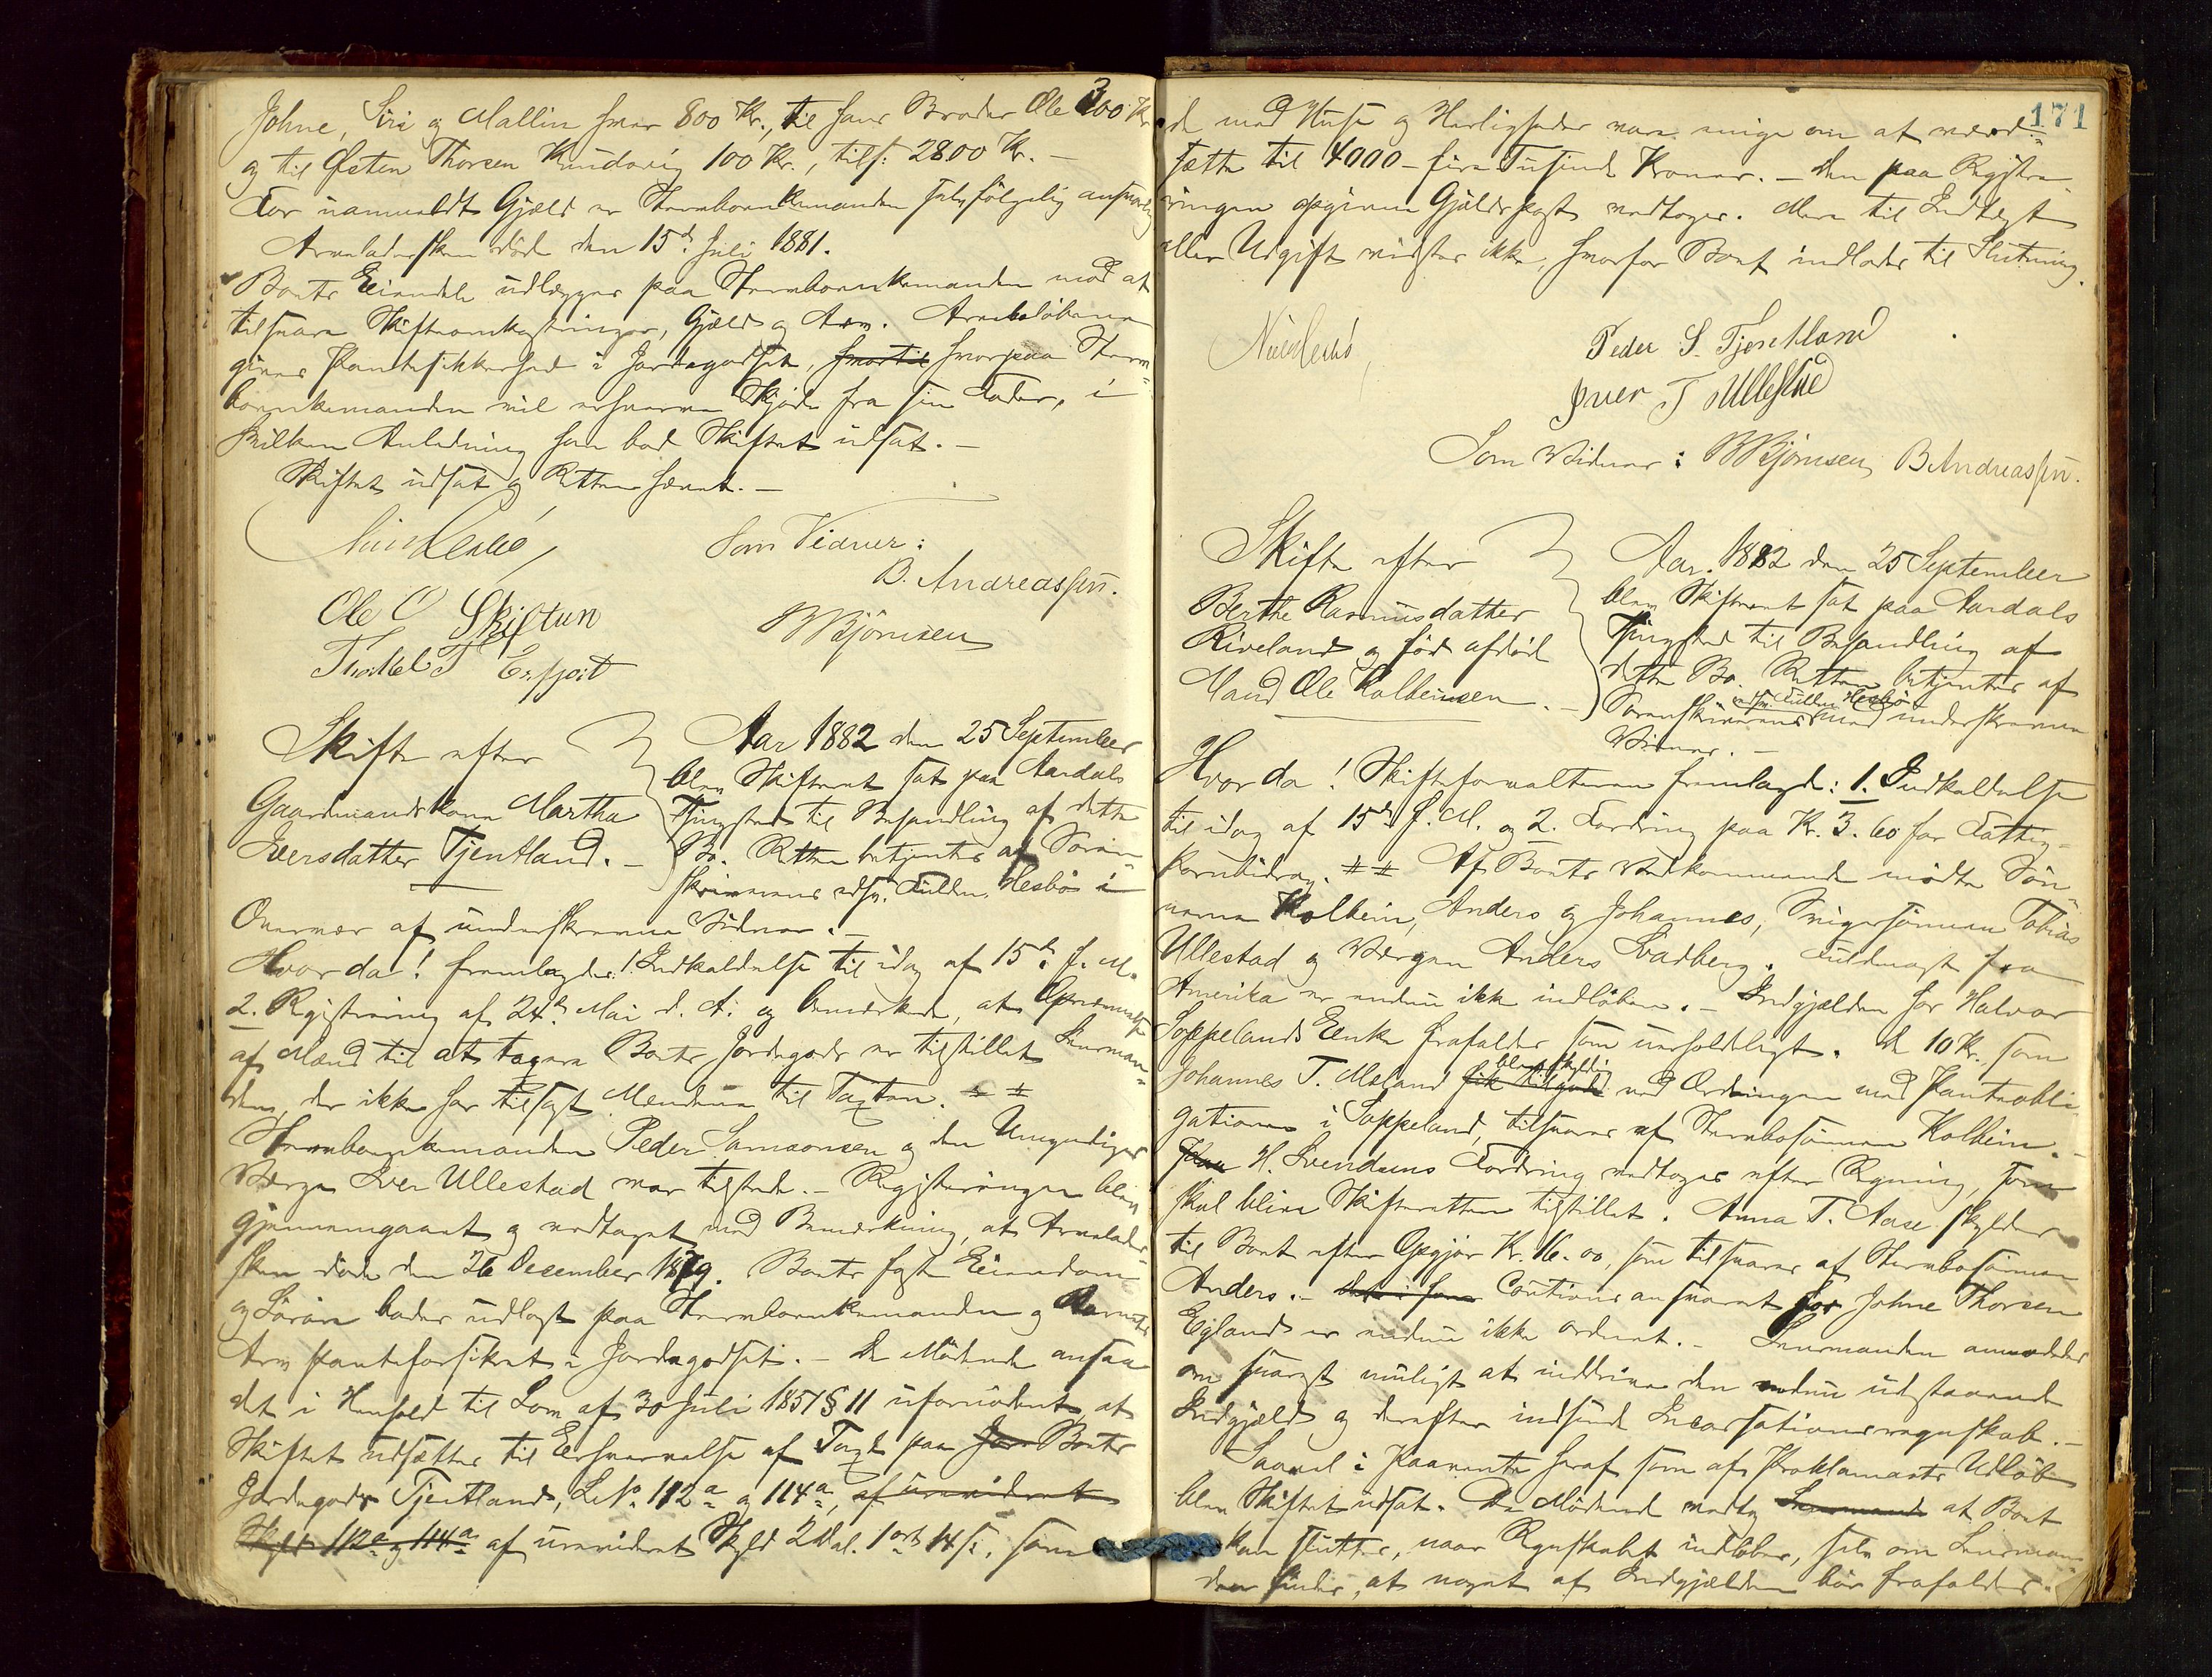 Johne, Siri og Mallin hver 800 Kr., til hans Broder Ole 300 Kr
og til Østen Thorsen 100 Kr., tils: 2800 Kr. –
For uanmeldt Gjæld er Stervboenkemanden selvfølgelig ansvarlig
Arveladersken døde den 15de Juli 1881.
Boets Eiendele udlægges paa Stervboenkemanden mod at
tilsvare Skifteomkostninger, Gjæld og Arv. Arvebeløbene
gives Pantesikkerhed i Jordegodset, hvortil hvorpaa Sterv-
boenkemanden vil erhverve Skjøde fra sin Fader, i
hvilken Anledning han bad Skiftet udsat. –
Skiftet udsat og Retten hævet. –
Som Vidner:
B. Andreassen.
Ole O Skiftun
BBjörnsen
Thorkel T
Skifte efter
Gaardmandskone Martha
Iversdatter Tjentland. –
Aar 1882 den 25 September
blev Skifteret sat paa Aardals
Thingsted til Behandling af dette
Bo. Retten betjentes af Soren-
skriverens edsv. Fuldm. Hesbö i
Overvær af underskrevne Vidner. –
Hvorda! fremlagdes 1. Indkaldelse til idag af 15de f. M.
2. Registrering af 24de Mai d. A. og bemærkede, at Opnævnelse
af Mænd til at taxere Boets Jordegods er tilstillet Lensman-
den, der ikke har tilsagt Mændene til Taxten. # #
Stervboenkemanden Peder Samsonsen og den Umyndiges
Værge Iver Ullestad var tilstede. – Registreringen blev
gjennemgaaet og vedtaget med Bemærkning, at Arvelader-
sken døde den 26 December 1879. Boets faste Eiendom
og Løsøre bades udlagt paa Stervboenkemanden og Barnets
Arv panteforsikret i Jordegodset. – De Mødende ansaa
det i Henhold til Lov af 30 Juli 1851 § 11 ufornødent at
Skiftet udsættes til Erhvervelse af Taxt paa Jor Boets
Jordegods Tjentland, LNo 112a og 114a, af urevideret
Skyld 112a og 114a af urevideret Skyld 2 Dal. 1 ort 14 s., som
171
de med Huse og Herligheder vare enige om at værd-
sætte til 4000 – fire Tusinde Kroner. – Den paa Registre-
ringen opgivne Gjældspost vedtoges. Mere til Indtægt
eller Udgift vidstes ikke, hvorfor Boet indlodes til Slutning.
Peder S. Tjentland
Iver T Ullestad
Som Vidner: BBjörnsen, B Andreassen.
Skifte efter
Berthe Rasmusdatter
Riveland og før afdød
Mand Ole Kolbeinsen. –
Aar 1882 den 25 September
blev Skifteret sat paa Aardals
Thingsted til Behandling af
dette Bo. Retten betjentes af
edsv. Fuldm. Hesbö
Sorenskriverens med underskrevne
Vidner. –
Hvorda! Skifteforvalteren fremlagde: 1. Indkaldelse
til idag af 15de f. M. og 2. Fordring paa Kr. 3.60 for Fattig-
kornbidrag. # # Af Boets Vedkommende mødte Søn-
nerne Kolbein, Anders og Johannes, Svigersønnen Tobias
Ullestad og Værgen Anders Svadberg. Fuldmagt fra
Amerika er endnu ikke indløben. – Indgjælden hos Halvor
Soppelands Enke frafaldes som uerholdeligt. De 10 Kr. som
blev skyldig
Johannes T. Meland fik tilgode ved Ordningen med Panteobli-
gationen i Soppeland, tilsvares af Stervbosønnen Kolbein. –
H. Svendsens Fordring vedtoges efter Regning, som
skal blive Skifteretten tilstillet. Anna T. Aase skylder
til Boet efter Opgjør Kr. 16.00, som tilsvares af Stervbosønnen
Anders. – Cautionsansvaret for Johne Thorsen
Egland er endnu ikke ordnet. – Lensmanden anmodedes
om snarest muligt at inddrive den endnu udstaaende
Indgjæld og derefter indsende Incassationsregnskab. –
Saavel i Paavente heraf som af Proklamaets Udløb
blev Skiftet udsat. De Mødende vedtog Lensmand at Boet
kan sluttes, naar Regnskabet indløber, selv om Lensman-
den finder, at noget af Indgjælden bør frafaldes.